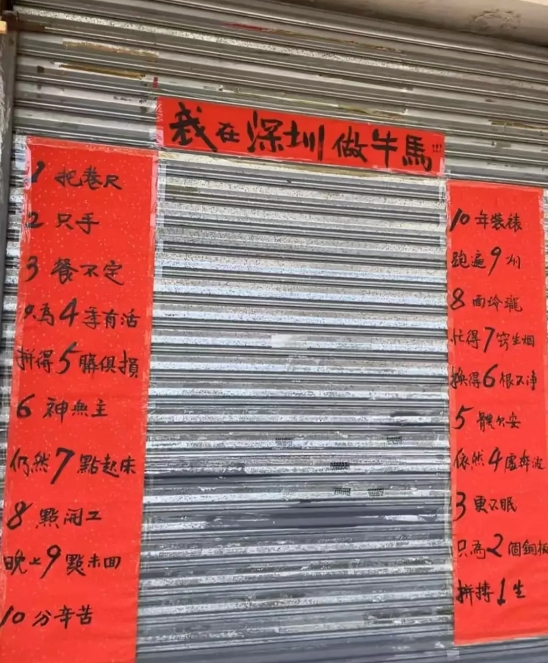 我在深圳做牛馬!!!
1把卷尺
2只手
3餐不定
只為4季有活
拼得5勝俱損
6神無主
仍然7點起床
8點開工
晚上9點未回
10分辛苦
10年裝裱
跑遍9州
8面玲瓏
忙得7窍生烟
換得6根不净
5體欠安
依然4處奔波
3更不眠
只為2個銅板
拼搏1生